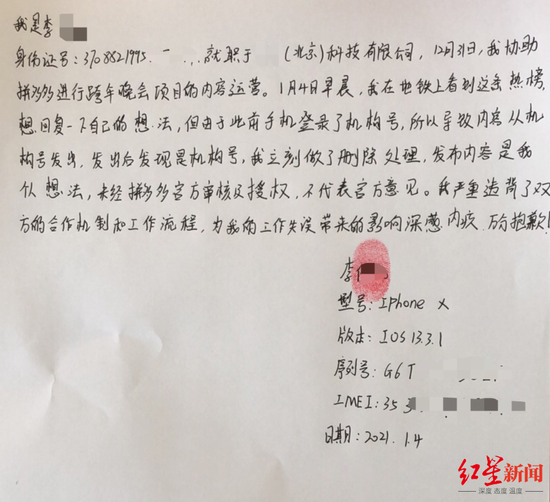 我是李
身份证号:3708821995 就职于 (北京)科技有限公司,12月31日,我协助
拼多多进行跨年晚会项目的内容运营。1月4日早晨,我在地铁上看到这条热榜,
想回复一下自己的想法,但由于此前手机登录了机构号,所以导致内容从机
构号发出,发出后发现是机构号,我立刻做了删除处理,发布内容是我
个人想法,未经拼多多官方审核及授权,不代表官方意见。我严重违背了双
方的合作机制和工作流程,为我的工作失误带来的影响深感内疚,万分抱歉!
李
型号:IPhone X
版本:IOS 13.3.1
序列号:G6T
IMEI:35
日期:2021.1.4
红星新闻
深度 态度 温度